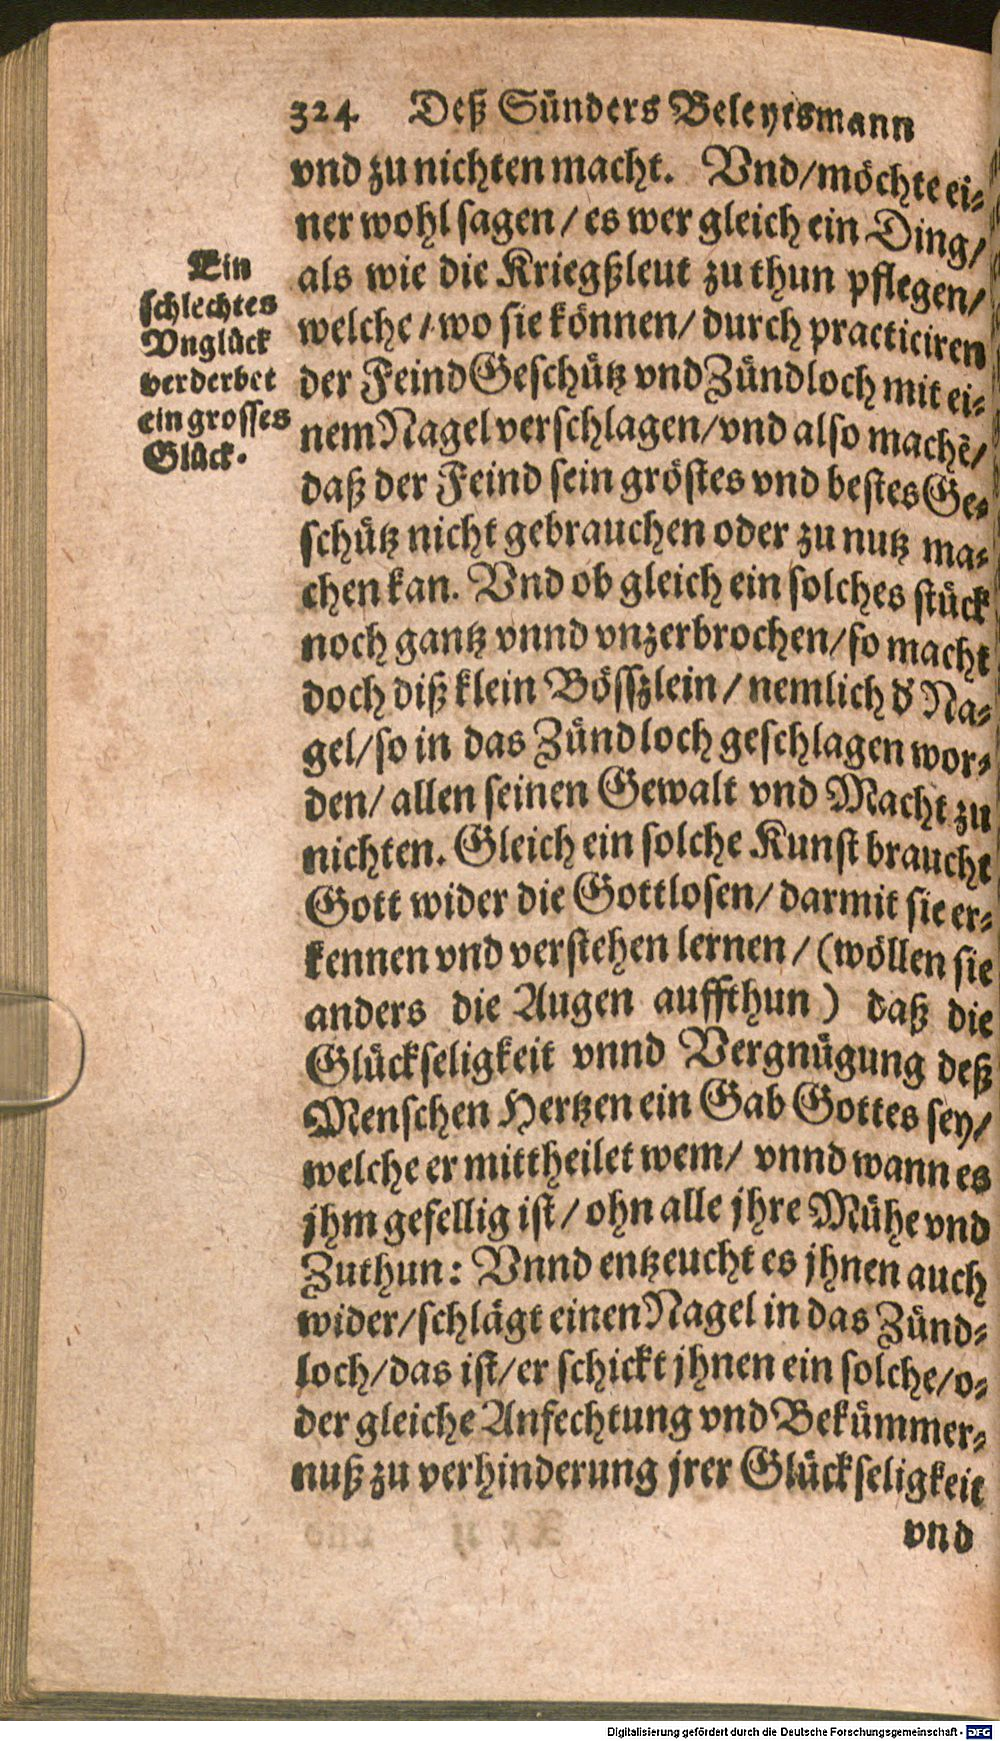 324 Deß Sünders Beleytsmann
vnd zu nichten macht. Vnd/möchte ei-
ner wohl sagen/es wer gleich ein Ding/
als wie die Kriegßleut zu thun pflegen/
welche/wo sie können/durch practiciren
der Feind Geschütz vnd Zündloch mit ei-
nem Nagel verschlagen/vnd also machē/
daß der Feind sein gröstes vnd bestes Ge-
schütz nicht gebrauchen oder zu nutz ma-
chen kan. Vnd ob gleich ein solches stück
noch gantz vnnd vnzerbrochen/so macht
doch diß klein Bösszlein/nemlich d' Na-
gel/so in das Zündloch geschlagen wor-
den/allen seinen Gewalt vnd Macht zu
nichten. Gleich ein solche Kunst braucht
Gott wider die Gottlosen/darmit sie er-
kennen vnd verstehen lernen/(wöllen sie
anders die Augen auffthun) daß die
Glückseligkeit vnnd Vergnügung deß
Menschen Hertzen ein Gab Gottes sey/
welche er mittheilet wem/vnnd wann es
jhm gefellig ist/ohn alle jhre Mühe vnd
Zuthun: Vnnd entzeucht es jhnen auch
wider/schlägt einen Nagel in das Zünd-
loch/das ist/er schickt jhnen ein solche/o-
der gleiche Anfechtung vnd Bekümmer-
nuß zu verhinderung jrer Glückseligkeit
vnd
Ein
schlechtes
Vnglück
verderbet
ein grosses
Glück.
Digitalisierung gefördert durch die Deutsche Forschungsgemeinschaft - DFG